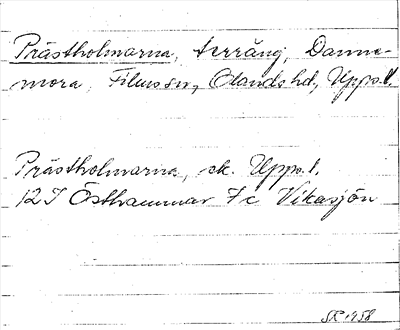 Prästholmarna, terräng, Danne-
mora, Films sn, Olands hd, Upps.l.
Prästholmarna, ek. Upps.l.
12I Östhammar 7c Vikasjön
SR 1958